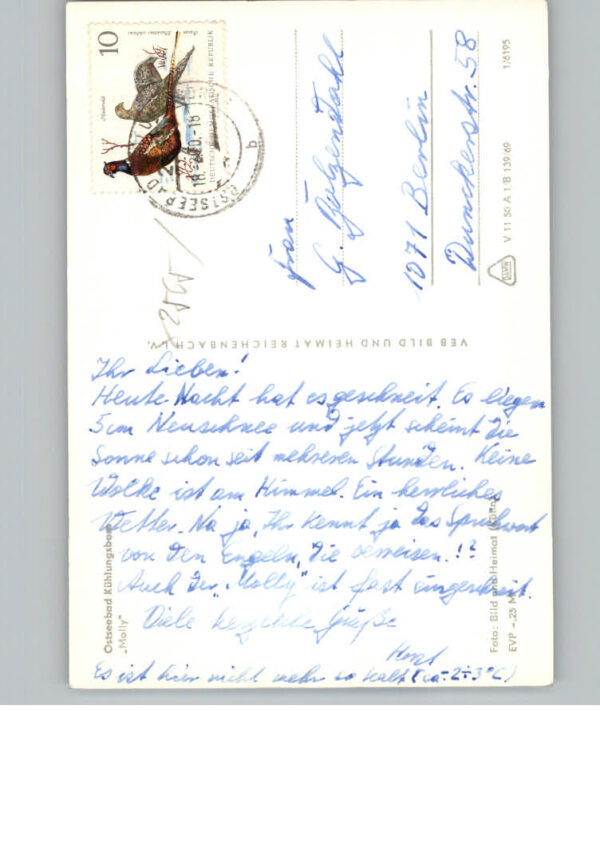 10
DEUTSCHE DEMOKRATISCHE REPUBLIK
OSTSEEBAD
18
b
Frau
G.
1071 Berlin
Dunckerstr. 58
1/6195
V 11 50 A 1/B 139/69
VEB BILD UND HEIMAT REICHENBACH I. V.
Ihr Lieben!
Heute Nacht hat es geschneit. Es liegen
5cm Neuschnee und jetzt scheint die
Sonne schon seit mehreren Stunden. Keine
Wolke ist am Himmel. Ein herrliches
Wetter. Na ja, Ihr kennt ja das Sprichwort
von den Engeln, die verreisen.!?
Auch der "Molly" ist fast eingeschneit.
Viele herzliche Grüße
Horst
Es ist hier nicht mehr so kalt (ca -2÷3°C)
Ostseebad Kühlungsborn
„Molly"
Foto: Bild und Heimat
EVP -,25 M